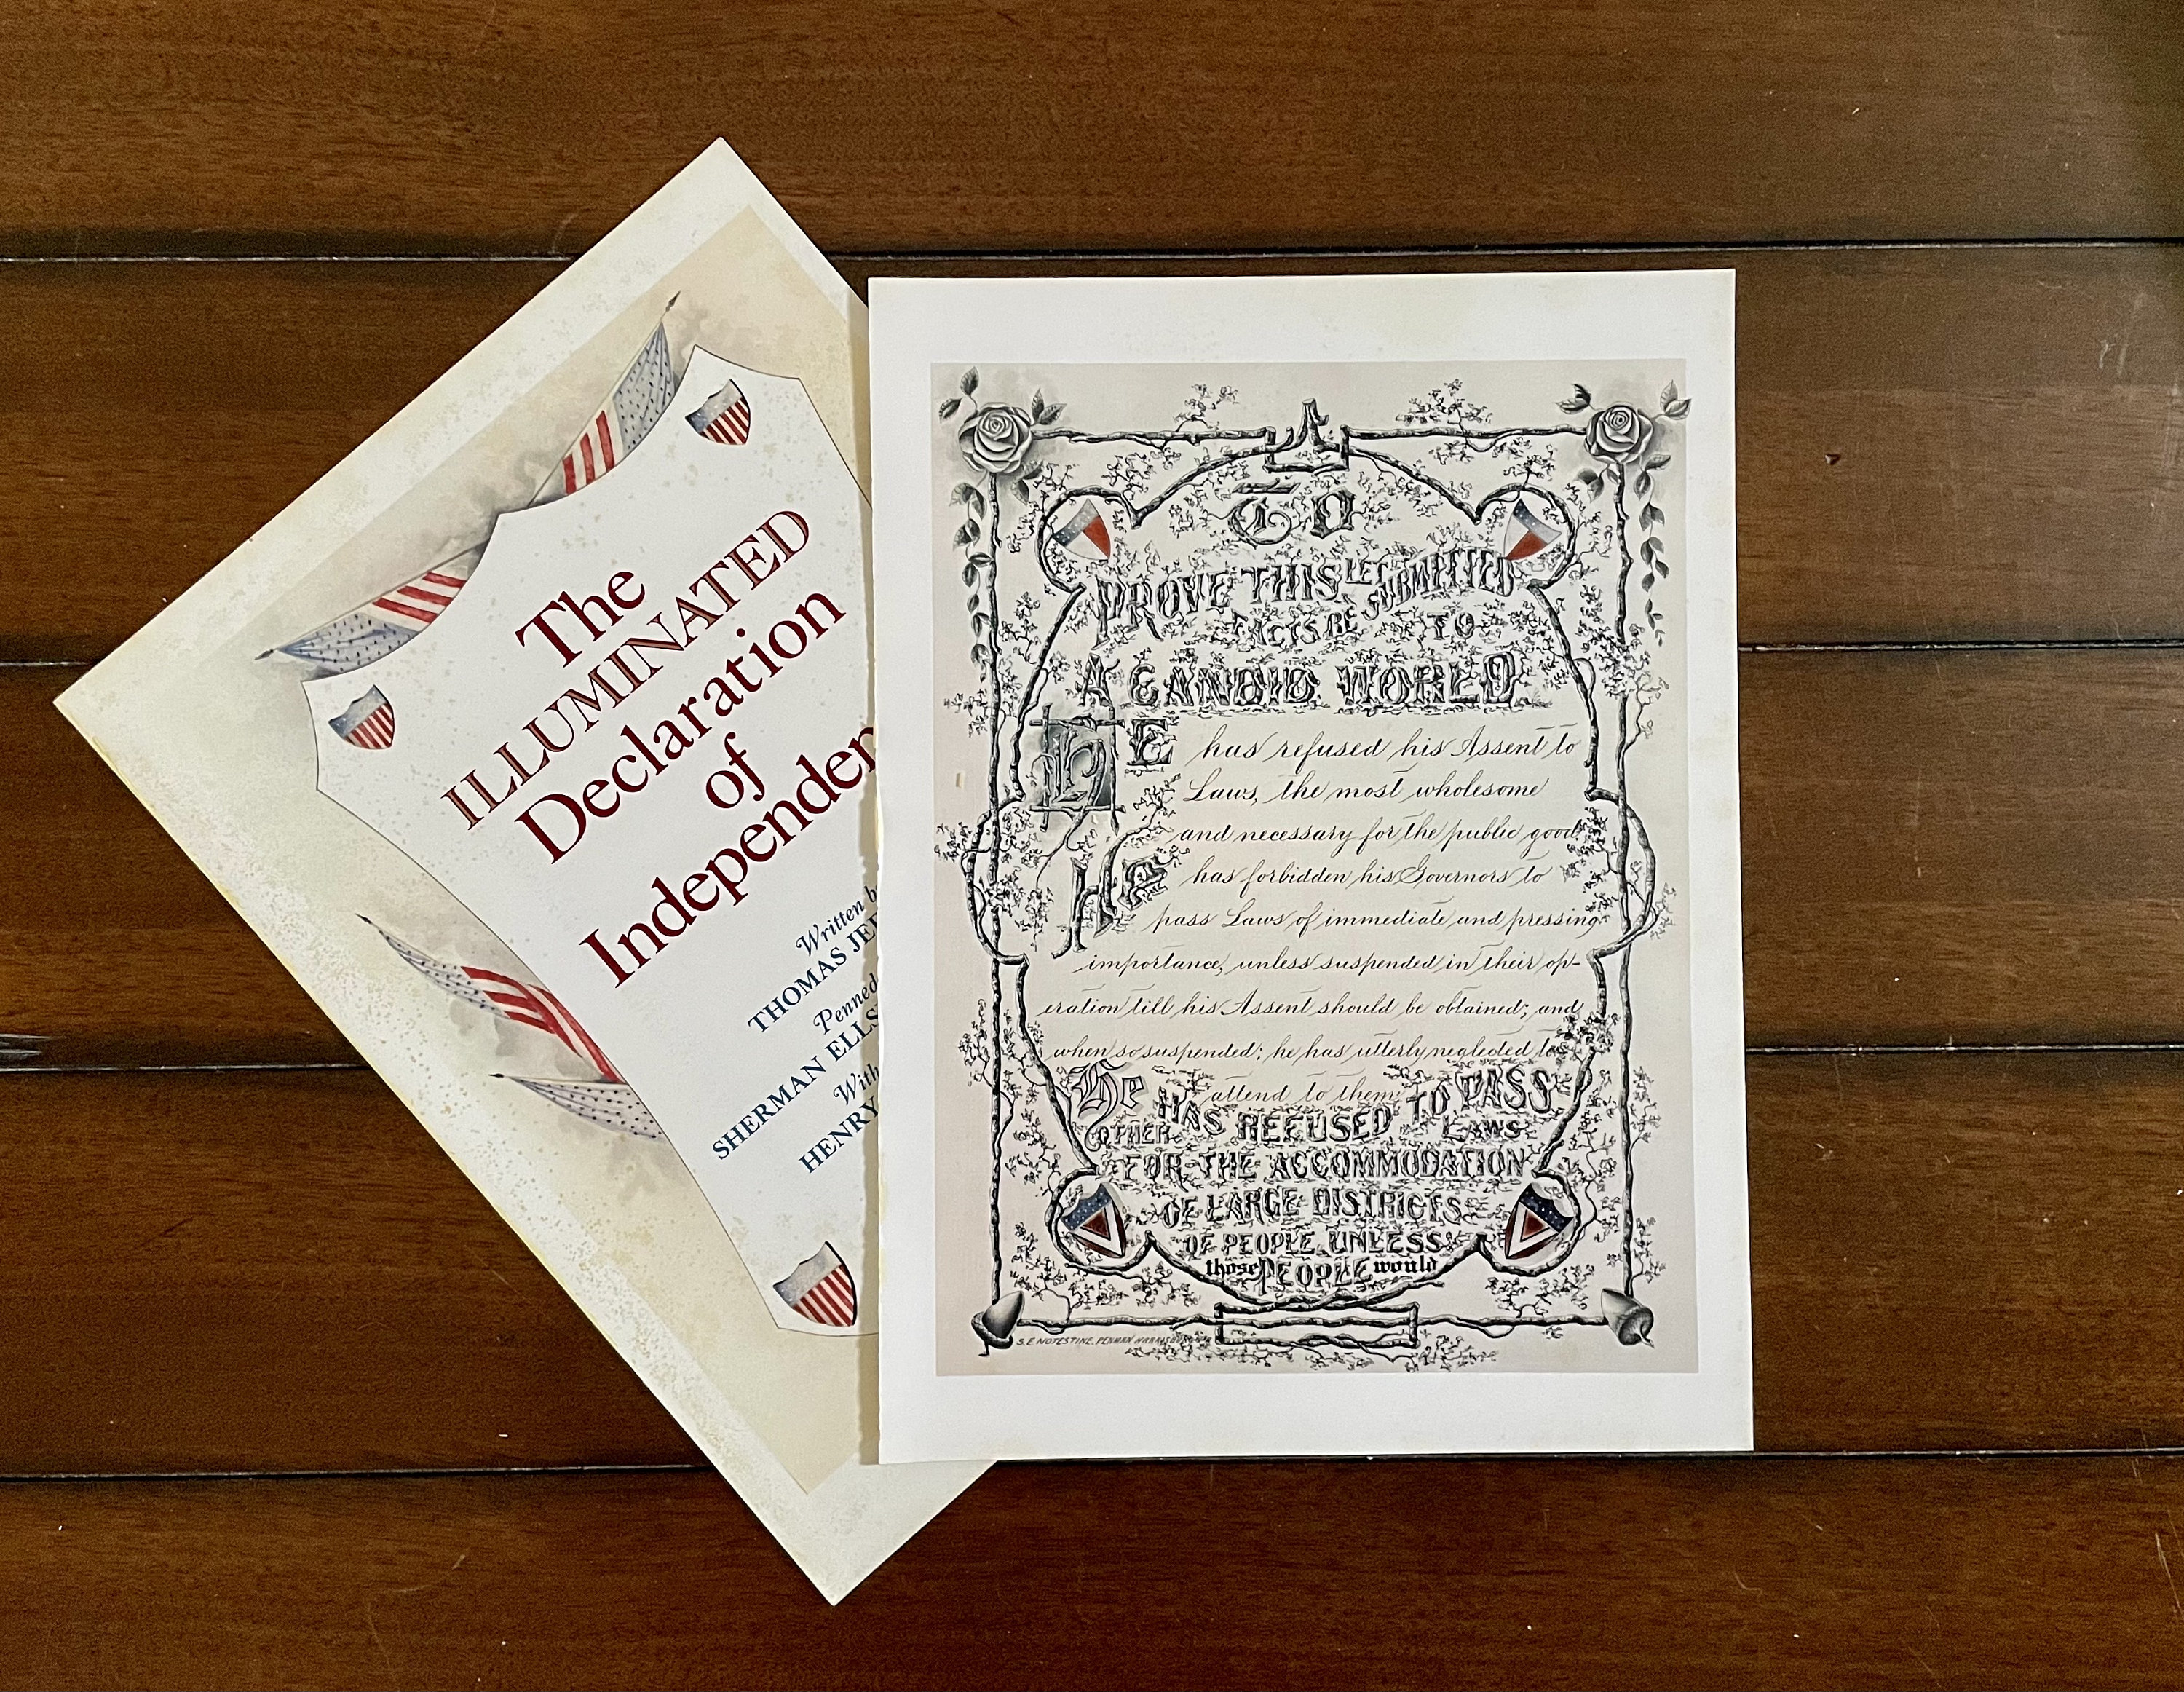 The
ILLUMINATED
Declaration
of
Independen
Written b
THOMAS JE
Penned
SHERMAN ELLS
With
HENRY
TO
PROVE THIS LET SUBMITTED
FACTS BE TO
A CANDID WORLD
HE has refused his Assent to
Laws, the most wholesome
and necessary for the public good.
He has forbidden his Governors to
pass Laws of immediate and pressing
importance, unless suspended in their op-
eration till his Assent should be obtained; and
when so suspended; he has utterly neglected to
attend to them
He HAS REFUSED TO PASS
OTHER LAWS
FOR THE ACCOMMODATION
OF LARGE DISTRICTS
OF PEOPLE, UNLESS
those PEOPLE would
S. E. NOTESTINE, PENMAN